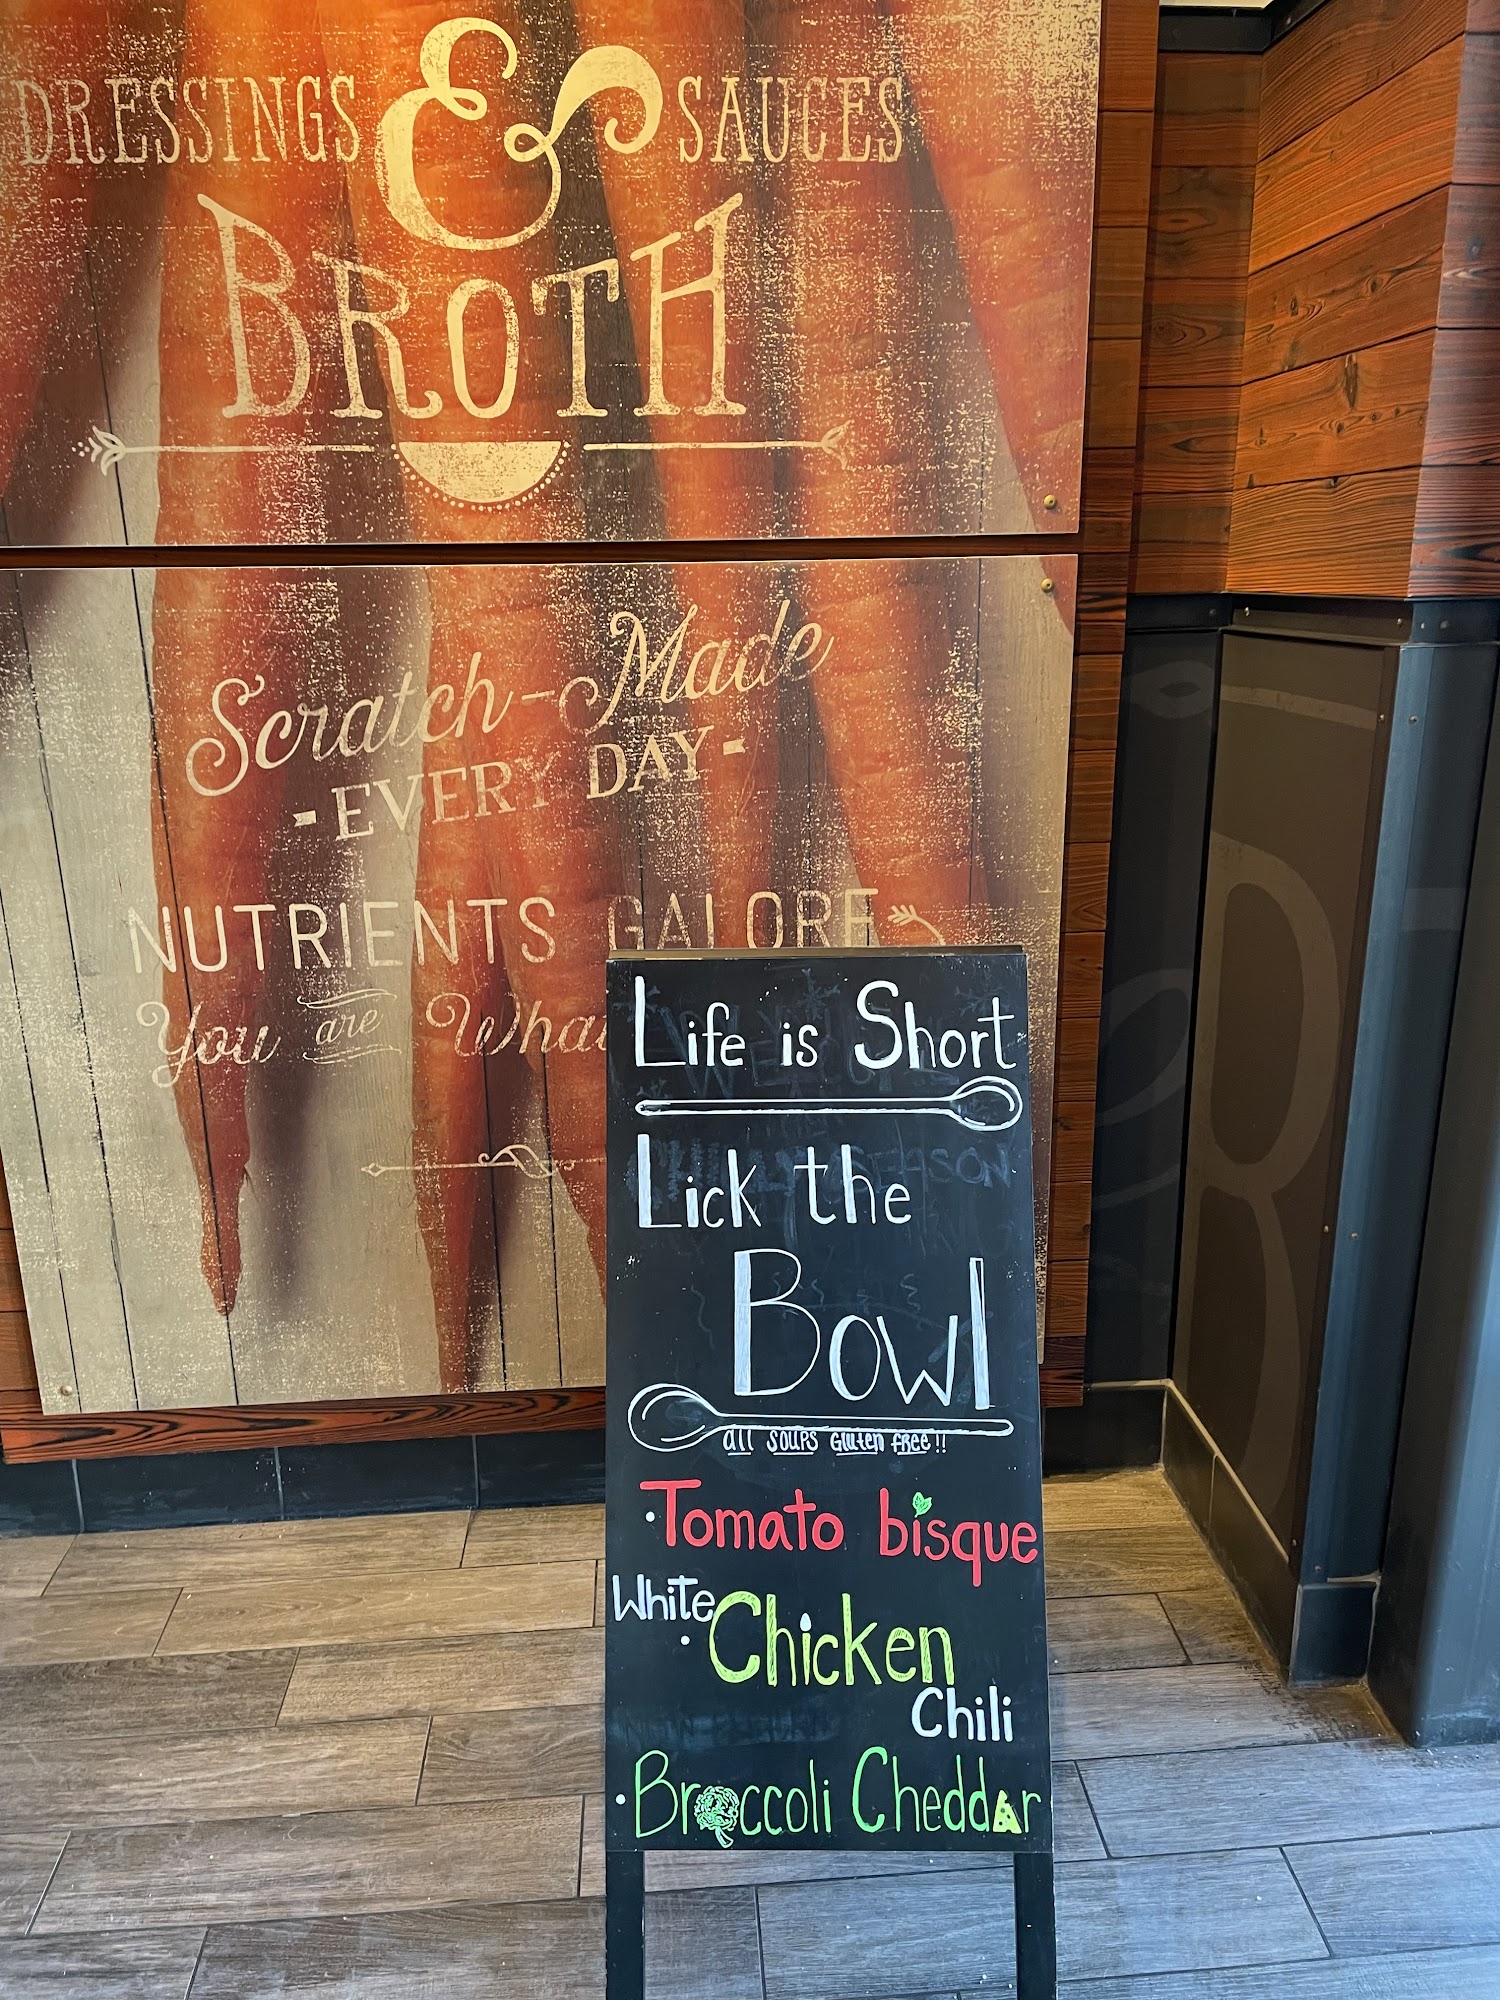 DRESSINGS & SAUCES
BROTH
Scratch-Made
-EVERY DAY-
NUTRIENTS GALORE
You are What
Life is Short
Lick the
Bowl
all soups Gluten free!!
•Tomato bisque
White
•Chicken
Chili
•Broccoli Cheddar